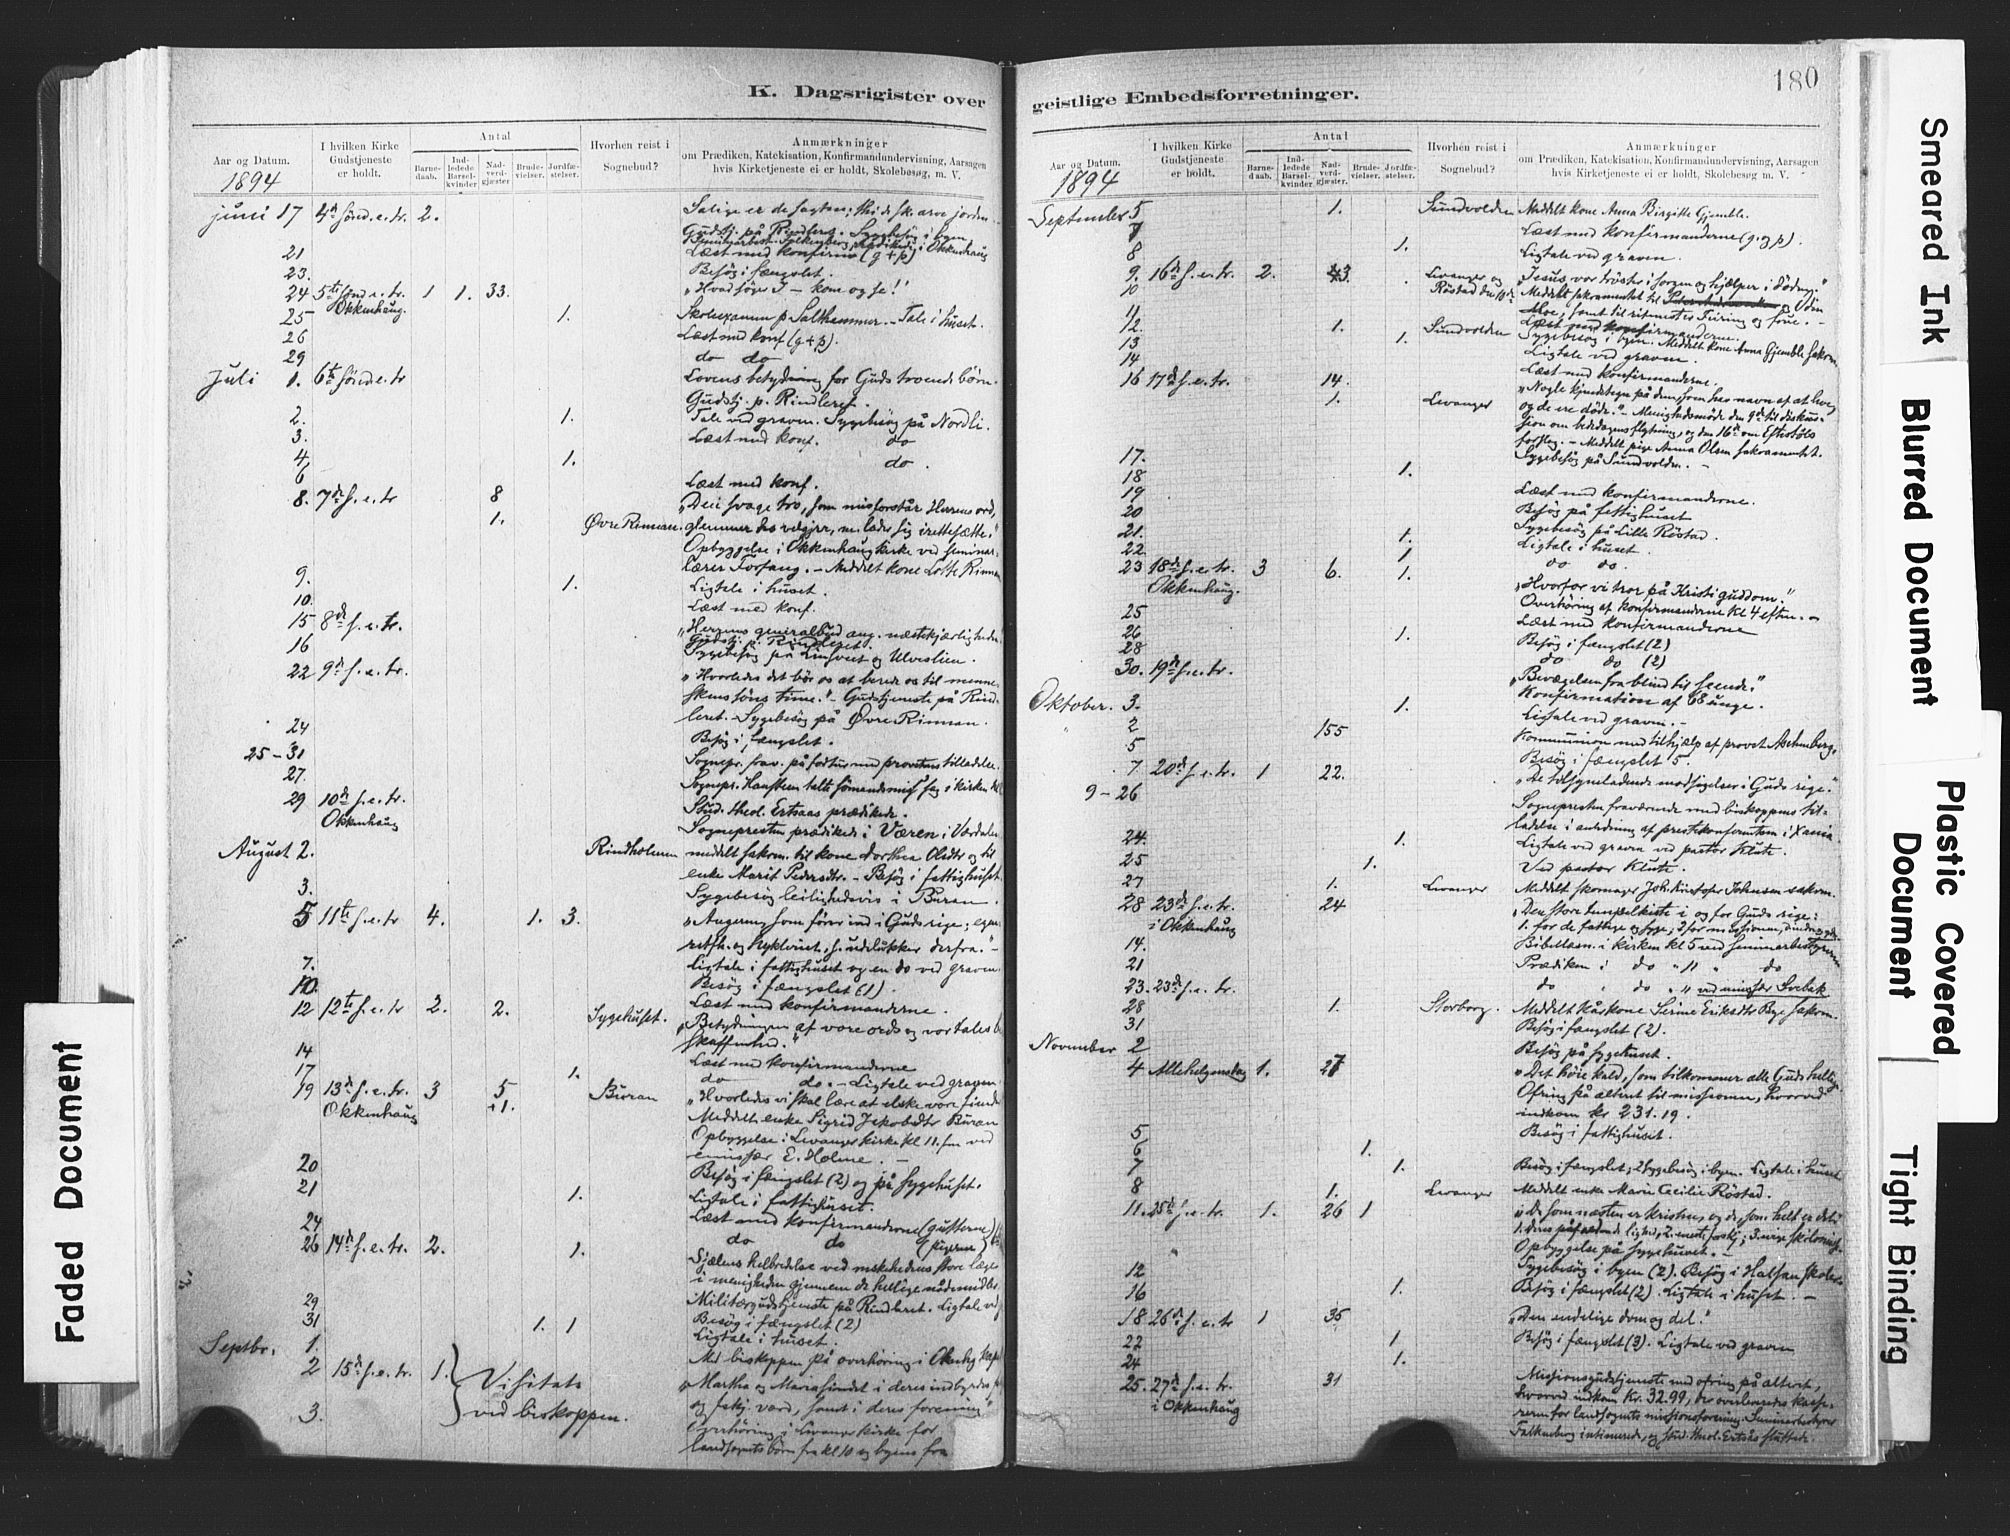 K. Dagsrigister over
Aar og Datum.
1894
I hvilken Kirke
Gudstjeneste
er holdt.
Antal
Barne-
daab.
Ind-
ledede
Barsel-
kvinder
Nad-
verd-
gjæster
Brude-
vielser.
Jordfæ-
stelser.
Hvorhen reist i
Sognebud?
Anmærkninger
om Prædiken, Katekisation, Konfirmandundervisning, Aarsagen
hvis Kirketjeneste ei er holdt, Skolebesøg, m. V.
juni 17 4de sønd. e. tr. 2. Salige er de sagtm; thi de sk. arve jorden
Gudstj. på Rindleret. Sygebesøg i byen
21 Læst med konfirm (g + p)
23. Besøg i fængslet.
24 5te sønd e. tr. 1 1. 33. "Hvad søger I – kom og se!"
Okkenhaug.
25 1. Skoleexamen p Salthammer. – Tale i huset.
26 Læst med konf (g + p).
29 do do
Juli 1. 6te sønd e. tr Lovens betydning for Guds troende børn.
Gudstj. p. Rindleret.
2. 1. Tale ved graven. Sygebesøg på Nordli.
3. Læst med konf. do
4. 1. do.
6 Læst med konf.
8. 7de s. e. tr 8 "Den svage tro, som misforstår Herrens ord,
1. Øvre Rinnan. glemmer hs velgjrr, m. lader sig irettesætte."
Opbyggelse i Okkenhaug kirke ved seminar-
lærer Forfang. – Meddelt kone Lotte Rinnan
9. 1. Ligtale i huset.
10. Læst med konf.
15 8de s. e. tr. "Herrens generalbud ang. næstekjærligheden
Gudstj. p. Rindleret.
16 Sygebesøg på Lin­tveit og Ulvestien.
22 9de s. e. tr. "Hvorledes det bør os at berede os til menne-
skens søns time." – Gudstjeneste på Rind-
leret. – Sygebesøg på Øvre Rinnan.
24 Besøg i fængslet.
25 – 31 Sognepr. frav. på fodtur med provstens tilladelse.
27. Sognepr. Hansteen talte sømandsmiss sag i kirken
29 10de s. e. tr. Stud. theol. Ertsaas prædikede.
Okkenhaug Sognepresten prædikede i Væren i Værdalen
August 2. Rindholmen meddelt sakrm. til kone Dorthea Olsdtr og til
enke Marit Pedersdtr. – Besøg i fattighuset
3. Sygebesøg leilighedsvis i Buran.
5 11te s. e. tr 4. 1. 3.
7. Ligtale i fattighuset og en do ved graven
10. Besøg i fængslet (1).
12 12te s. e. tr 2. 2. Sygehuset. Læst med konfirmanderne.
"Betydningen af vore ords og vor tales be
skaffenhed."
14 Læst med konfirmanderne
17 1. do do. – Ligtale ved graven
19 13de s. e. tr. 3 5 Buran "Hvorledes vi skal lære at elske vore fiende
Okkenhaug +1. Meddelt enke Sigrid Jakobsdtr Buran
Opbyggelse i Levanger kirke kl 11. fm ved
emissær E. Holme. –
20 Besøg i fængslet (2) og på sygehuset.
21 1. Ligtale i fattighuset.
24 Læst med konfirmanderne (gutterne)
26 14de s. e. tr. 2. 1. do do (pigerne)
Sjælens helbredelse ved mskhedens store læge
i menigheden gjennem de hellige nådemidler
29 Militærgudstjeneste på Rindleret. Ligtale ved
31 1. 1 Besøg i fængslet (2)
Septbr. 1. Ligtale i huset.
2 15de s. e. tr. 1. Visitats Med biskoppen på overhøring i Okkenhg kapel
"Martha og Mariasindet i deres indbyrdes
3. ved biskoppen. og fskj. værd, samt i deres forening"
Overhøring i Levanger kirke for
landsognets børn fra kl 10 og byens fra
geistlige Embedsforretninger.
180
Aar og Datum.
1894
I hvilken Kirke
Gudstjeneste
er holdt.
Antal
Barne-
daab.
Ind-
ledede
Barsel-
kvinder.
Nad-
verd-
gjæster.
Brude-
vielser.
Jordfæ-
stelser.
Hvorhen reist i
Sognebud?
Anmærkninger
om Prædiken, Katekisation, Konfirmandundervisning, Aarsagen
hvis Kirketjeneste ei er holdt, Skolebesøg, m. V.
September 5 1. Sundvolden Meddelt kone Anna Birgitte Gjemble.
7 Læst med konfirmanderne (g. og p).
8 1. Ligtale ved graven.
9. 16de s. e. tr. 2. 43. Levanger og "Jesus vor trøster i sorgen og hjælper i døden."
10 Røstad Meddelt sakramentet til
11 Moe, samt til ritmester Türing og frue. –
12. 1. Sundvolden Læst med konfirmanderne.
13 1. Sygebesøg i byen. Meddelt kone Anna Gjemble sakrm.
14 Ligtale ved graven.
16 17de s. e. tr. 14. Læst med konfirmanderne.
1. Levanger "Nogle kjendetegn på dem, som har navn af at leve,
og de ere døde." – Menighedsmøde den 9de til diskus-
sion om bededagens flytning, og den 16de om Eftestøls
forslag. – Meddelt pige Anna Olsen sakramentet.
17. Sygebesøg på Sundvolden. –
18 1.
19 Læst med konfirmanderne.
20 Besøg på fattighuset
21. 1. Sygebesøg på Lille Røstad.
22 1 Ligtale i huset.
23 18de s. e. tr. 3 6. 1. do do.
Okkenhaug. "Hvorfor vi tror på Kristi guddom."
25 Overhøring af konfirmanderne kl 4 eftm.
26 1. Læst med konfirmanderne
28 Besøg i fængslet (2)
30. 19de s. e. tr. do do (2)
"Bevægelsen fra blind til seende."
Oktober. 3. 1. Konfirmation af 68 unge.
2 155 Ligtale ved graven. –
5 Kommunion med tilhjælp af provst Aschenberg.
7 20de s. e. tr. 1 22. Besøg i fængslet 5
9 – 26 "De tilsyneladende modsigelser i Guds rige."
Sognepresten fraværende med biskoppens til-
ladelse i anledning af prestekonferentsen i Xania.
24. 1. Ligtale ved graven ved pastor Klüte.
25 1. Ved pastor Klüte.
27 1. Levanger Meddelt skomager Joh. Kristofer Johansen sakrm.
28 23de s. e. tr. 24 "Den store tempelkiste i og for Guds rige:
i Okkenhaug 1. for de fattige og syge; 2 for missionen,
14. Bibellæsn. i kirken kl 5 ved seminarbestyreren
21 Prædiken i do " 11 " do
23. 23de s. e. tr. do " do " " ved missær Svebak
28 1. Storborg. Meddelt kårkone Serine Eriksdtr Bye sakrm.
31 Besøg i fængslet (2).
November 2 Besøg på sygehuset.
4 Allehelgensdag 1. 27 "Det høie kald, som tilkommer alle Guds hellige
Ofring på alteret til missionen, hvorved
indkom kr 231.19.
5 Besøg i fattighuset.
6 1.
7 1. Besøg i fængslet; 2 sygebesøg i byen. Ligtale i huset
8 1. Levanger Meddelt enke Marie Cecilie Røstad.
11. 25de s. e. tr. 1. 26 1 "De som næsten er kristne, og de, som helt er det:
1. deres påfaldende lighed, 2. eneste forskj; 3. evige skilsmisse.
Opbyggelse på sygehuset. –
12 Sygebesøg i byen (2). Besøg i Halsan skole.
16 1. Besøg i fængslet (2). Ligtale i huset. –
18 26de s. e. tr 1 35 "Den endelige dom og del."
22 1 Besøg i fængslet (3). Ligtale ved graven
24 1.
25. 27de s. e. tr. 31 Missionsgudstjeneste med ofring på alteret,
i Okkenhaug hvorved indkom Kr. 32.99, der overleveredes kasse-
reren for landsognets missionsforening. Seminarbestyrer
Falkenberg intimerede, og stud. theol. Ertsås sluttede.
Faded Document
Smeared Ink
Blurred Document
Plastic Covered
Document
Tight Binding